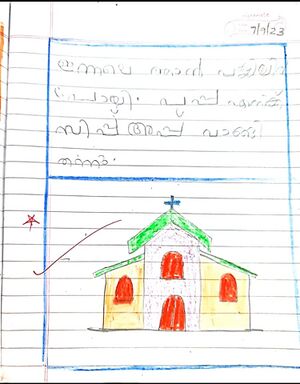 7/7/23
ഇന്നലെ ഞാൻ പള്ളിയിൽ
പോയി. പപ്പ എനിക്ക്
സിപ്പ് അപ്പ് വാങ്ങി
തന്നു.